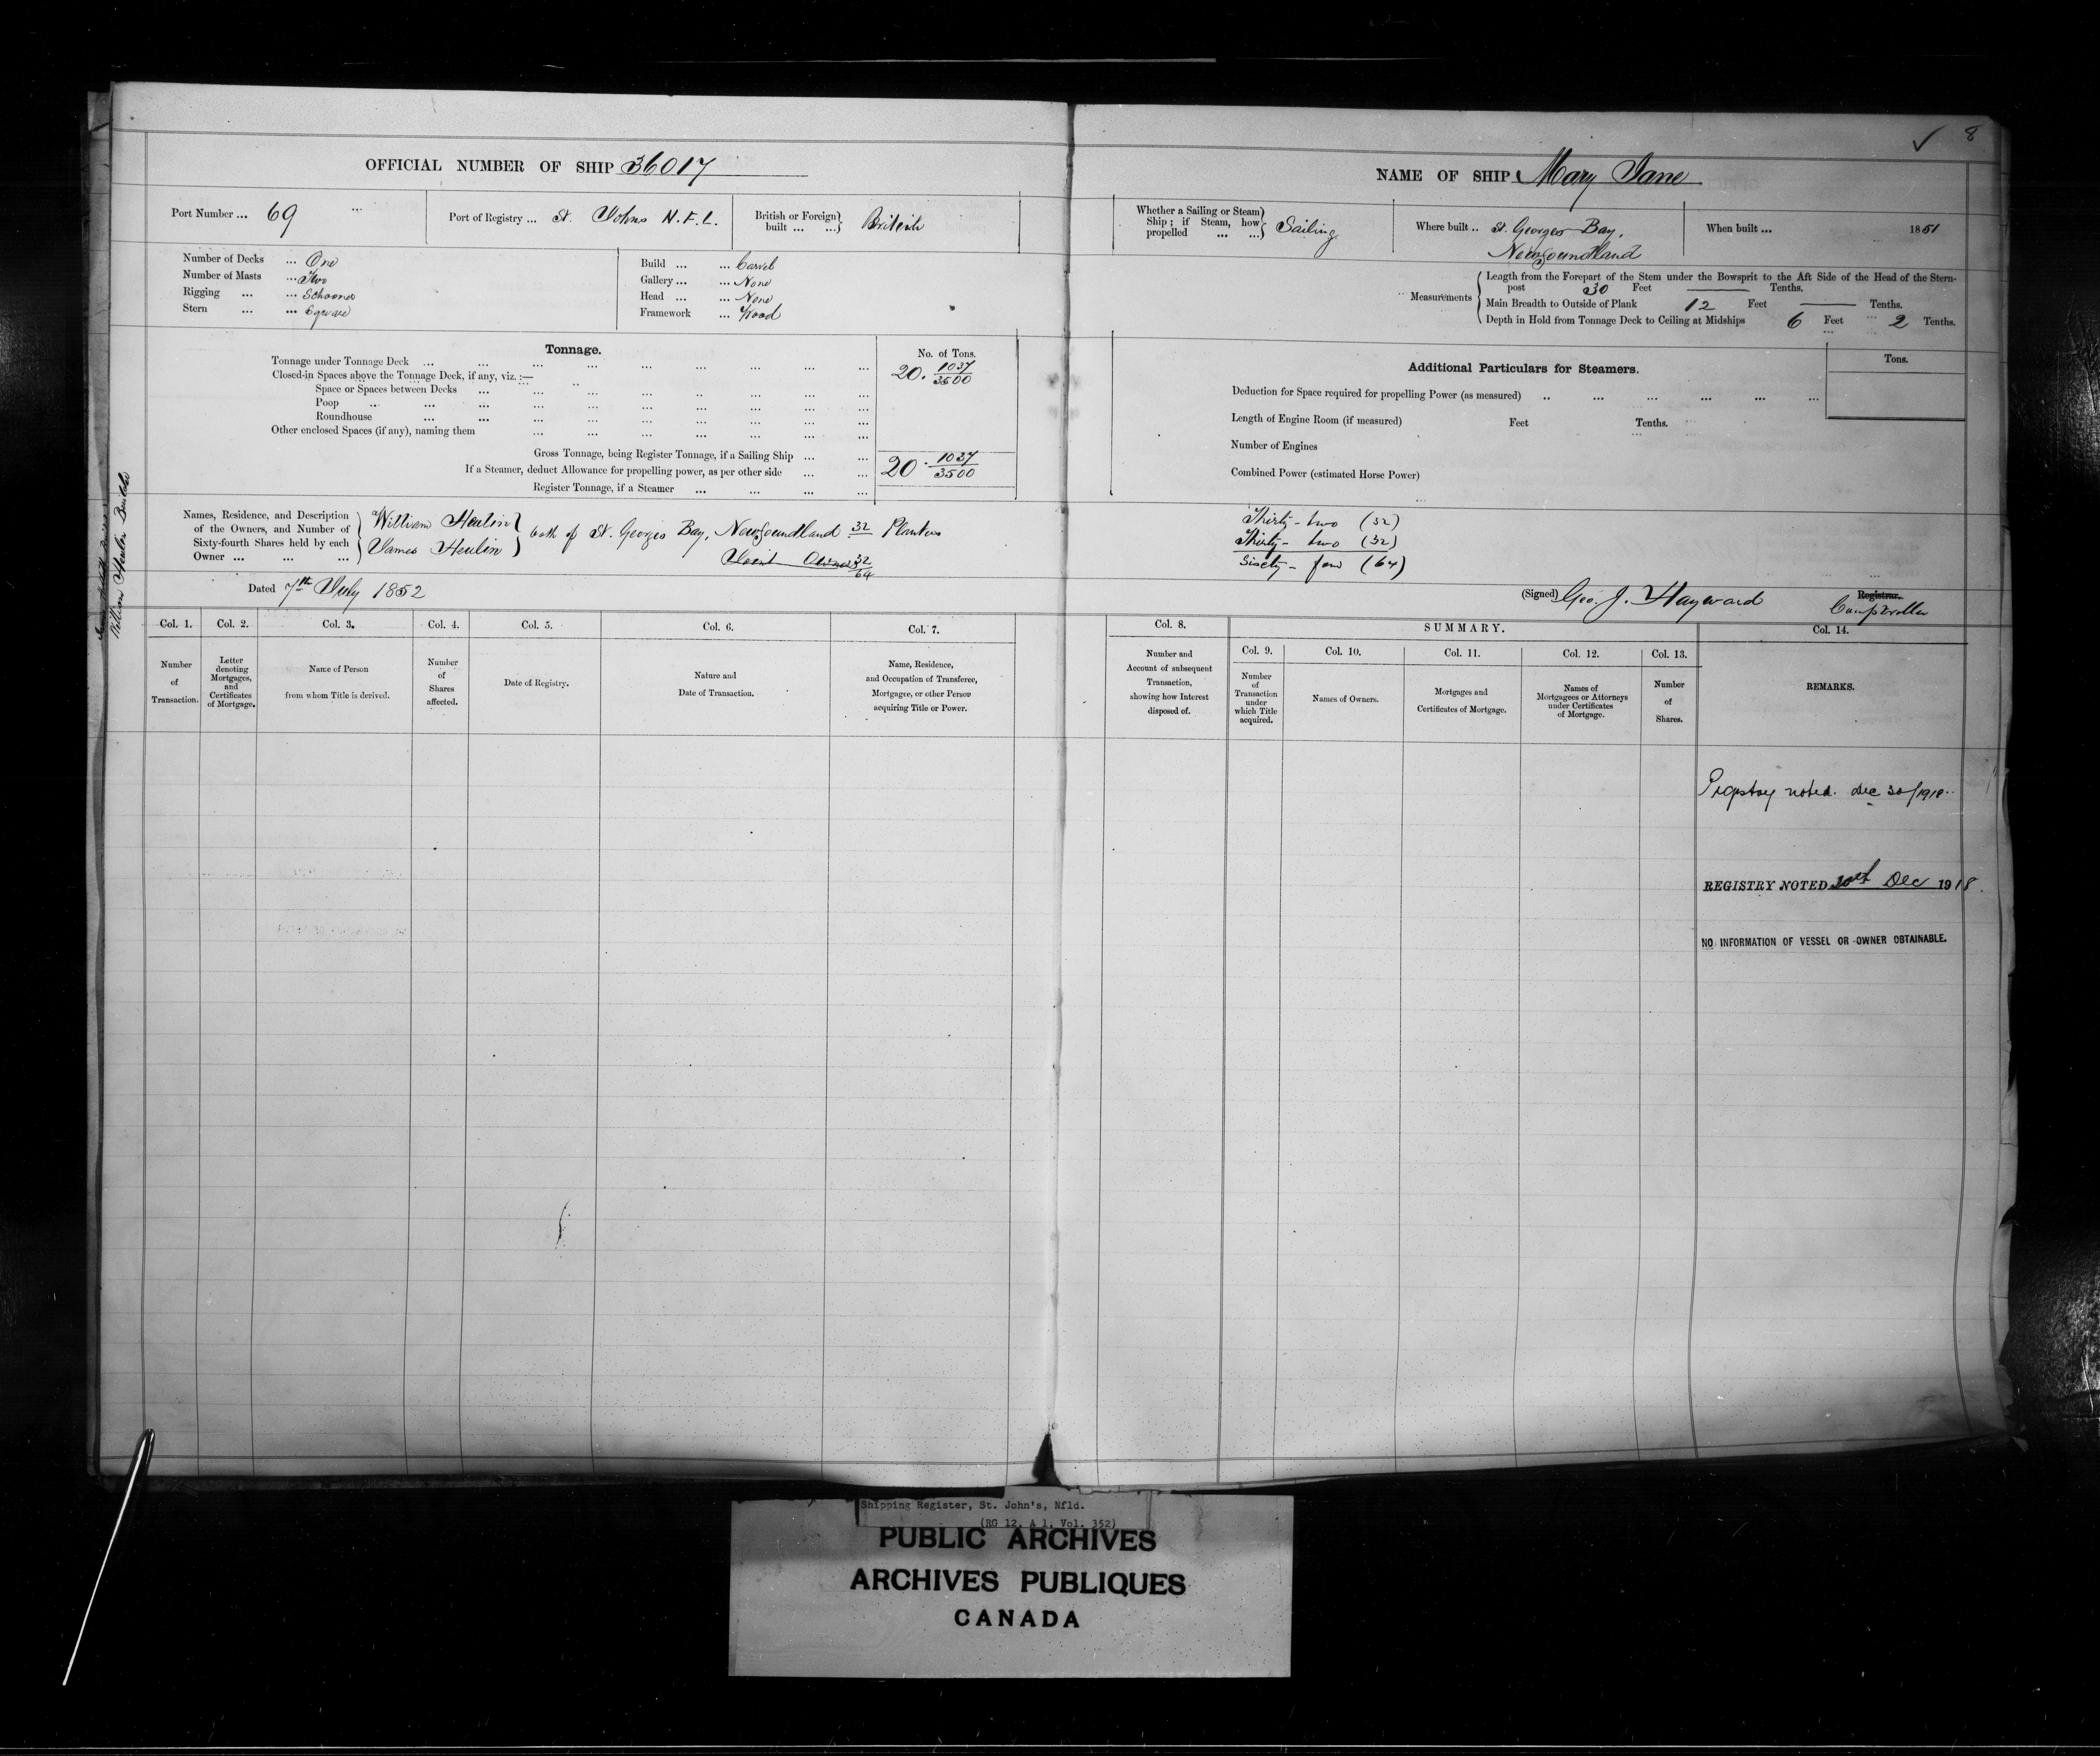 8
OFFICIAL NUMBER OF SHIP 36017
Port Number ... 69
Port of Registry ... St. Johns N.F.L.
British or Foreign built ... ... } British
Number of Decks ... One
Number of Masts ... Two
Rigging ... ... Schooner
Stern ... ... Square
Build ... ... Carvel
Gallery ... ... None
Head ... ... None
Framework ... Wood
Tonnage.
No. of Tons.
Tonnage under Tonnage Deck ... 20. 1037/3500
Closed-in Spaces above the Tonnage Deck, if any, viz.:—
Space or Spaces between Decks ...
Poop ...
Roundhouse ...
Other enclosed Spaces (if any), naming them ...
Gross Tonnage, being Register Tonnage, if a Sailing Ship ... 20. 1037/3500
If a Steamer, deduct Allowance for propelling power, as per other side ...
Register Tonnage, if a Steamer ...
Names, Residence, and Description
of the Owners, and Number of
Sixty-fourth Shares held by each
Owner ... ... ...
William Heulin
James Heulin
both of St. Georges Bay, Newfoundland 32 Planters
Joint Owners 32
64
Dated 7th July 1852
William Heulin Builder
Col. 1. Number of Transaction.
Col. 2. Letter denoting Mortgages, and Certificates of Mortgage.
Col. 3. Name of Person from whom Title is derived.
Col. 4. Number of Shares affected.
Col. 5. Date of Registry.
Col. 6. Nature and Date of Transaction.
Col. 7. Name, Residence, and Occupation of Transferee, Mortgagee, or other Person acquiring Title or Power.
NAME OF SHIP Mary Jane
Whether a Sailing or Steam Ship; if Steam, how propelled ... ... } Sailing
Where built .. St. Georges Bay,
Newfoundland
When built ... 1851
Measurements
Length from the Forepart of the Stem under the Bowsprit to the Aft Side of the Head of the Stern-
post 30 Feet — Tenths.
Main Breadth to Outside of Plank 12 Feet — Tenths.
Depth in Hold from Tonnage Deck to Ceiling at Midships 6 Feet 2 Tenths.
Additional Particulars for Steamers.
Tons.
Deduction for Space required for propelling Power (as measured) ..
Length of Engine Room (if measured) Feet Tenths.
Number of Engines
Combined Power (estimated Horse Power)
Thirty-two (32)
Thirty-two (32)
Sixty-four (64)
(Signed) Geo. J. Hayward Registrar.
Comptroller
Col. 8. Number and Account of subsequent Transaction, showing how Interest disposed of.
SUMMARY.
Col. 9. Number of Transaction under which Title acquired.
Col. 10. Names of Owners.
Col. 11. Mortgages and Certificates of Mortgage.
Col. 12. Names of Mortgagees or Attorneys under Certificates of Mortgage.
Col. 13. Number of Shares.
Col. 14.
REMARKS.
Registry noted. Dec 30/1918
REGISTRY NOTED 30th Dec 1918.
NO INFORMATION OF VESSEL OR OWNER OBTAINABLE.
Shipping Register, St. John's, Nfld.
(RG 12, A 1, Vol. 352)
PUBLIC ARCHIVES
ARCHIVES PUBLIQUES
CANADA